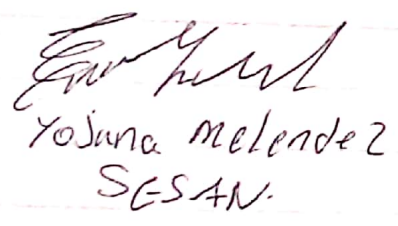 Yojana Melendez
SESAN.